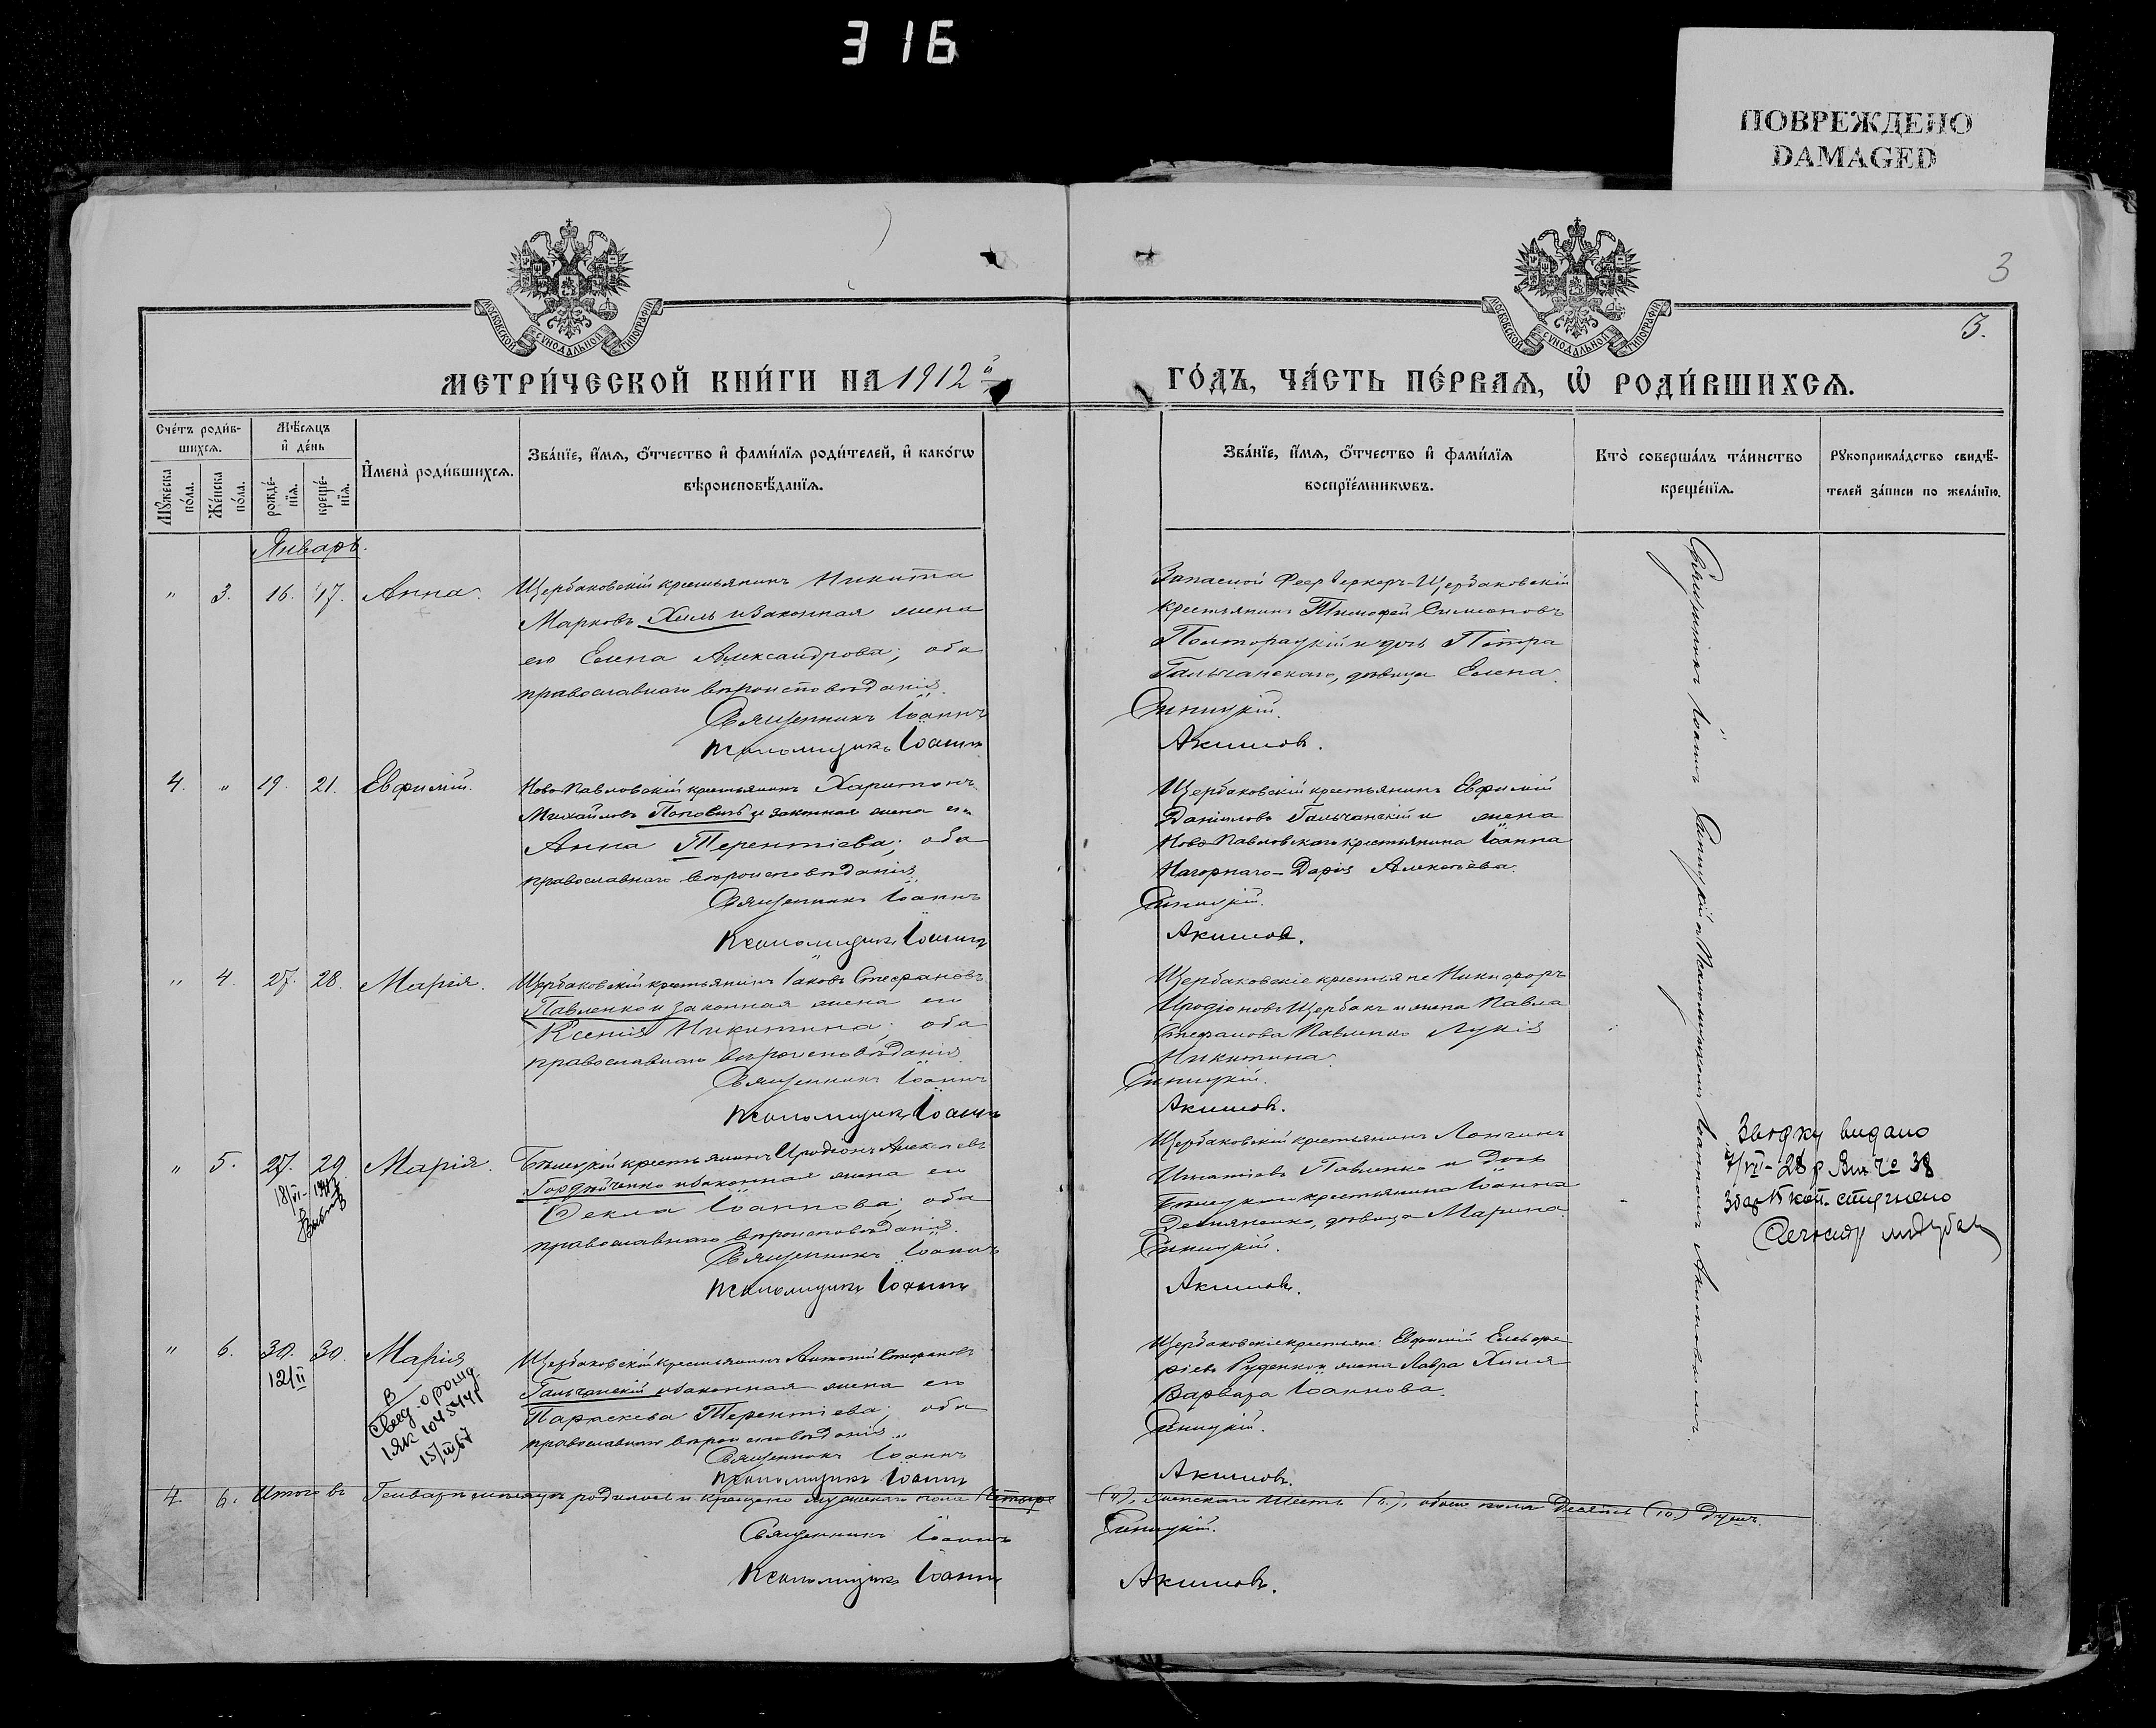 316
ПОВРЕЖДЕНО
DAMAGED
3
3.
МОСКОВСКОЙ СѴНОДАЛЬНОЙ ТИПОГРАФІИ
МОСКОВСКОЙ СѴНОДАЛЬНОЙ ТИПОГРАФІИ
МЕТРИ́ЧЕСКОЙ КНИ́ГИ НА 1912 й
ГО́ДЪ, ЧА́СТЬ ПЕ́РВАѦ, Ѡ РОДИ́ВШИХСѦ.
Сче́тъ роди́в-
шихсѧ.
Мꙋжеска по́ла.
Же́нска по́ла.
Мѣ́сѧцъ
и҆ де́нь
рожде́-нїѧ.
креще́-нїѧ.
И҆мена̀ роди́вшихсѧ.
Зва́нїе, и҆́мѧ, ѻ҆́тчество и҆ фами́лїѧ роди́телей, и҆ како́гѡ
вѣроисповѣ́данїѧ.
Зва́нїе, и҆́мѧ, ѻ҆́тчество и҆ фами́лїѧ
воспрїе́мникѡвъ.
Кто̀ соверша́лъ та́инство
креще́нїѧ.
Рꙋкоприкла́дство свидѣ́-
телей за́писи по жела́нїю.
Январь.
" 3. 16. 17. Анна.
Щербаковскій крестьянинъ Никита
Марковъ Хиль и законная жена
его Елена Александрова; оба
православнаго вѣроисповѣданія.
Священникъ Іоаннъ
Псаломщикъ Іоаннъ
Запасной Фейерверкеръ-Щербаковскій
крестьянинъ Тимофей Симоновъ
Полторацкій и дочь Петра
Гальчанскаго, дѣвица Елена.
Синицкій.
Акимовъ.
4. " 19. 21. Евфимій.
Ново-Павловскій крестьянинъ Харитонъ
Михайловъ Поповичъ и законная жена его
Анна Терентіева; оба
православнаго вѣроисповѣданія
Священникъ Іоаннъ
Псаломщикъ Іоаннъ
Щербаковскій крестьянинъ Евфимій
Даніиловъ Гальчанскій и жена
Ново-Павловскаго крестьянина Іоанна
Нагорнаго - Дарія Алексѣева.
Синицкій.
Акимовъ.
" 4. 27. 28. Марія.
Щербаковскій крестьянинъ Іаковъ Стефановъ
Павленко и законная жена его
Ксенія Никитина; оба
православнаго вѣроисповѣданія
Священникъ Іоаннъ
Псаломщикъ Іоаннъ
Щербаковскіе крестьяне Никифоръ
Иродіоновъ Щербакъ и жена Павла
Стефанова Павленко Лукія
Никитина.
Синицкій.
Акимовъ.
" 5. 27. 29 Марія.
18/VI-
Бѣлецкій крестьянинъ Иродіонъ Алексѣевъ
Гордѣиченко и законная жена его
Ѳекла Іоаннова; оба
православнаго вѣроисповѣданія.
Священникъ Іоаннъ
Псаломщикъ Іоаннъ
Щербаковскій крестьянинъ Лонгинъ
Игнатіевъ Павленко и дочь
крестьянина Іоанна
дѣвица Марина
Синицкій.
Акимовъ.
видано
7/VII-28 р № 38
коп. стягнено
" 6. 30. 30. Марія
12/II
В
Свед. о рожд.
1ЯК 1045441
15/III 67
Щербаковскій крестьянинъ Антоній Стефановъ
Гальчанскій и законная жена его
Параскева Терентіева; оба
православнаго вѣроисповѣданія
Священникъ Іоаннъ
Псаломщикъ Іоаннъ
Щербаковскіе крестьяне: Евфимій Елевфе
ріевъ Руденко и жена Лавра Хиля
Варвара Іоаннова.
Синицкій.
Акимовъ.
Священникъ Іоаннъ Синицкій и Псаломщикомъ Іоанномъ Акимовымъ.
4. 6. Итого въ Генварѣ мѣсяцѣ родилось и крещено мужескаго пола Четыре
(4), женскаго Шесть (6.), обоего пола Десять (10.) душъ.
Священникъ Іоаннъ
Синицкій.
Псаломщикъ Іоаннъ
Акимовъ.